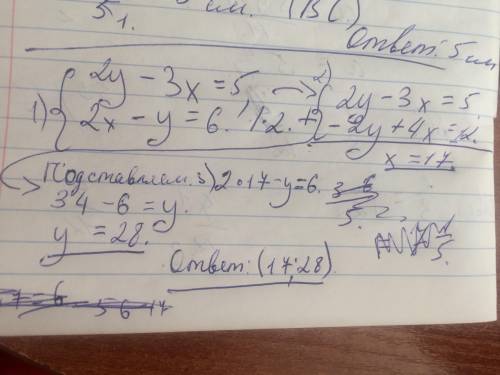 5 1. см. (ВС)
Ответ: 5 см
1) { 2y - 3x = 5
2x - y = 6. | · 2. +
2) { 2y - 3x = 5
-2y + 4x = 12.
x = 17.
Подставляем. 3) 2·17 - y = 6.
34 - 6 = y.
y = 28.
Ответ: (17; 28).